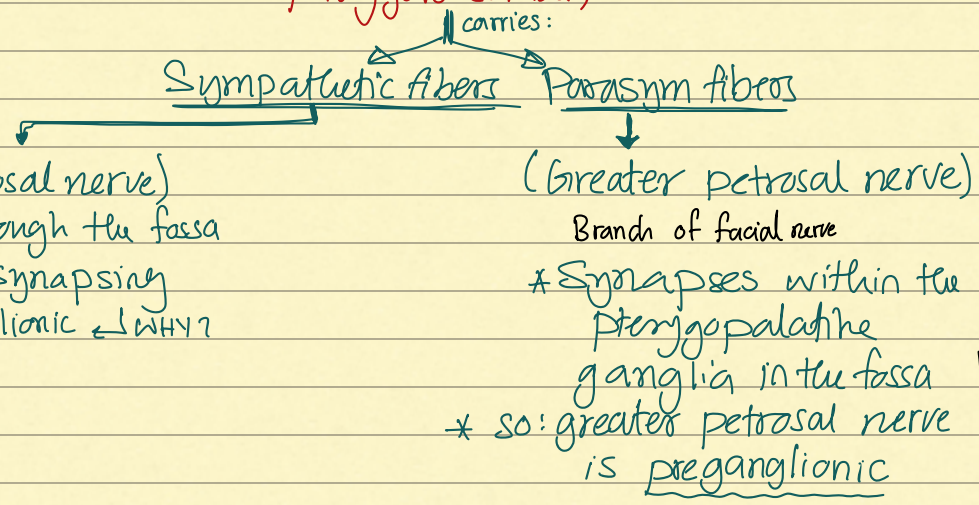 carries:
Sympathetic fibers
Parasym fibers
osal nerve)
ough the fossa
synapsing
lionic ↵ WHY?
(Greater petrosal nerve)
Branch of facial nerve
* Synapses within the
pterygopalatine
ganglia in the fossa
* so: greater petrosal nerve
is preganglionic